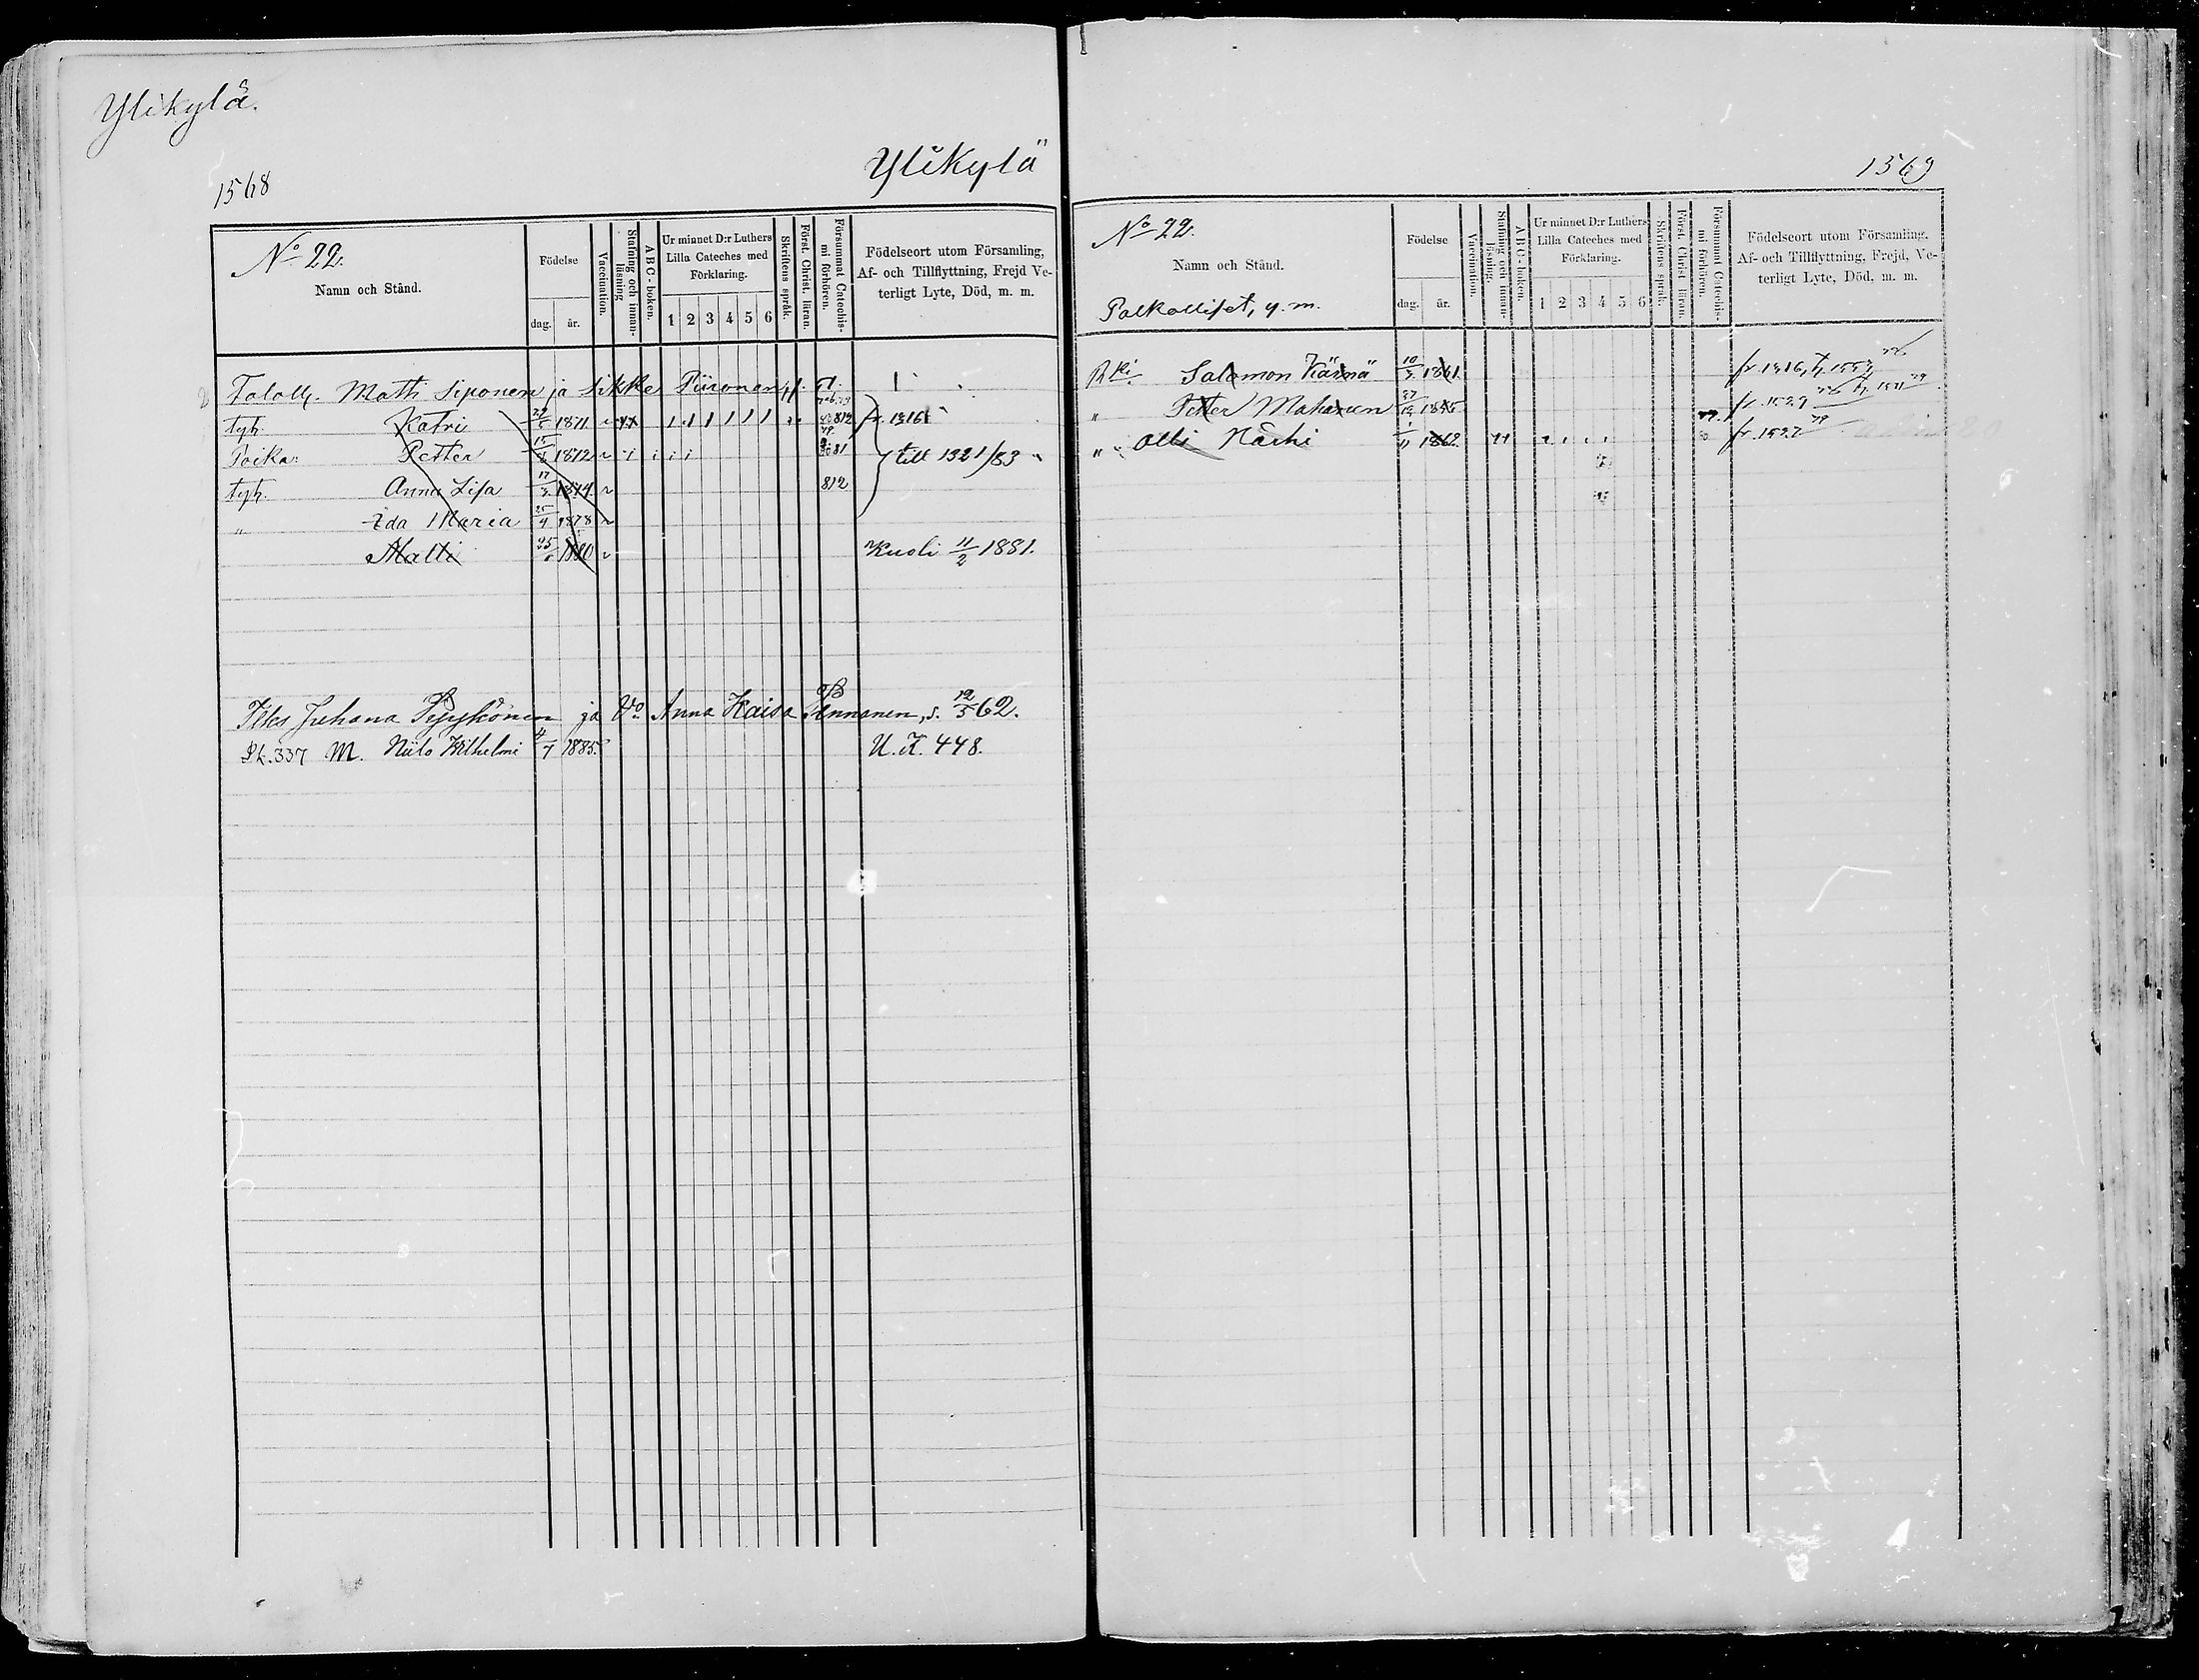 Ylikylä.
Ylikylä
1568
No 22.
Namn och Stånd.
Födelse
dag. år.
Vaccination.
Stafning och innanläsning
ABC-boken.
Ur minnet D:r Luthers Lilla Cateches med Förklaring.
1 2 3 4 5 6
Skriftens språk.
Först. Christ. läran.
Försummat Catechismi förhören.
Födelseort utom Församling, Af- och Tillflyttning, Frejd Veterligt Lyte, Död, m. m.
Matti Siponen ja Sikke Piironen
tyh. Katri 29/5 1871 812 fr. 1316
Poika: Petter 15/8 1872 81 till 1321/83
tyh. Anna Lisa 17/3 1874 812
" Ida Maria 25/4 1878
Matti 25/5 1880 Kuoli 11/2 1881.
Juhana Pyykönen ja Vo Anna Kaisa Pennanen, s. 12/5 62.
Sk. 337 M. Niilo Wilhelmi 4/7 1885. U.K. 448.
1569
No 22.
Namn och Stånd.
Palkolliset, y. m.
Födelse
dag. år.
Vaccination.
Stafning och innanläsning.
ABC-boken.
Ur minnet D:r Luthers Lilla Cateches med Förklaring.
1 2 3 4 5 6
Skriftens språk.
Först. Christ läran.
Försummat Catechismi förhören.
Födelseort utom Församling, Af- och Tillflyttning, Frejd, Veterligt Lyte, Död, m. m.
Salomon Kärnä 10/3 1861.
" Petter Mahonen 27/12 1845 fr. 1529
" Olli Kärki 1/11 1862. fr. 1527 79